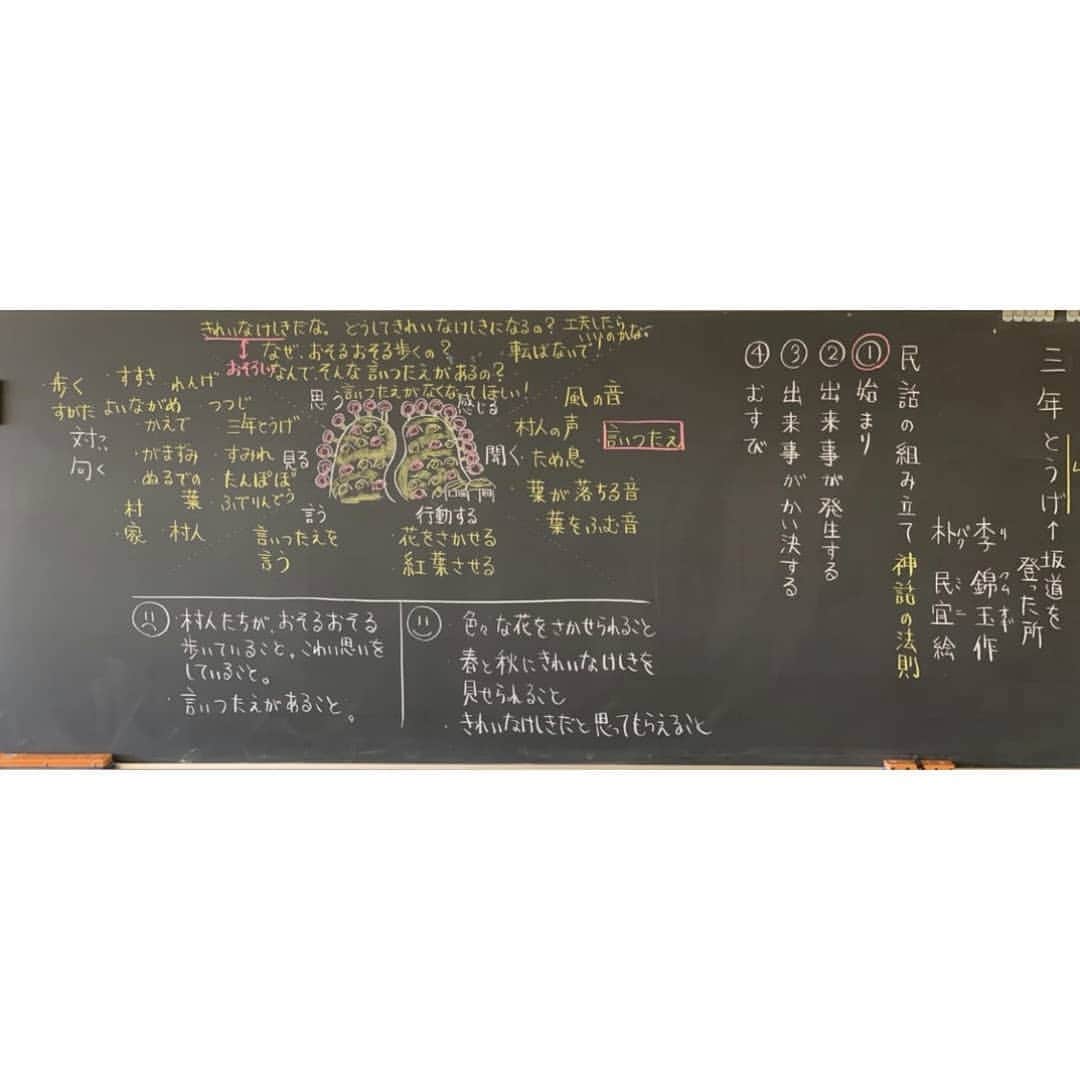 三年とうげ←坂道を
登った所
李 錦玉作
リ クムオギ
朴 民宜絵
パク ミニ
民話の組み立て 神話の法則
① 始まり
② 出来事が発生する
③ 出来事がかい決する
④ むすび
きれいなけしきだな。どうしてきれいなけしきになるの？ 工夫したら
いいのかな。
なぜ、おそるおそる歩くの？ 転ばないで！
おそろしい なんでそんな言いつたえがあるの？
言いつたえがなくなってほしい！
思う
感じる
見る
聞く
言う
行動する
・風の音
・村人の声
・言いつたえ
・ため息
・葉が落ちる音
・葉をふむ音
花をさかせる
紅葉させる
言いつたえを
言う
・歩く
すがた
・すすき
・れんげ
・よいながめ
・つつじ
・かえで
・三年とうげ
対つい
句く
・がまずみ
・すみれ
・ぬるでの
葉
・たんぽぽ
・ふでりんどう
村
・家
・村人
・村人たちが、おそるおそる
歩いていること。こわい思いを
していること。
・言いつたえがあること。
・色々な花をさかせられること
・春と秋にきれいなけしきを
見せられること
・きれいなけしきだと思ってもらえること